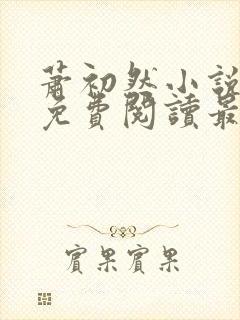 蕭初然小說
免費閱讀最
賓果賓果